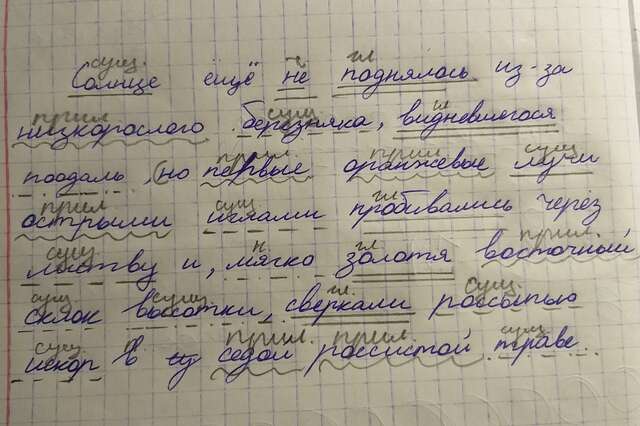 сущ. гл.
Солнце ещё не поднялось из-за
прил. сущ. гл
низкорослого березняка, видневшегося
прил. прил сущ
поодаль, но первые оранжевые лучи
прил сущ гл.
острыми иглами пробивались через
сущ н. гл. прил.
листву и, мягко золотя восточный
сущ сущ. гл. сущ.
склон высотки, сверкали россыпью
сущ п. прил. прил. сущ
искор в седой россистой траве.